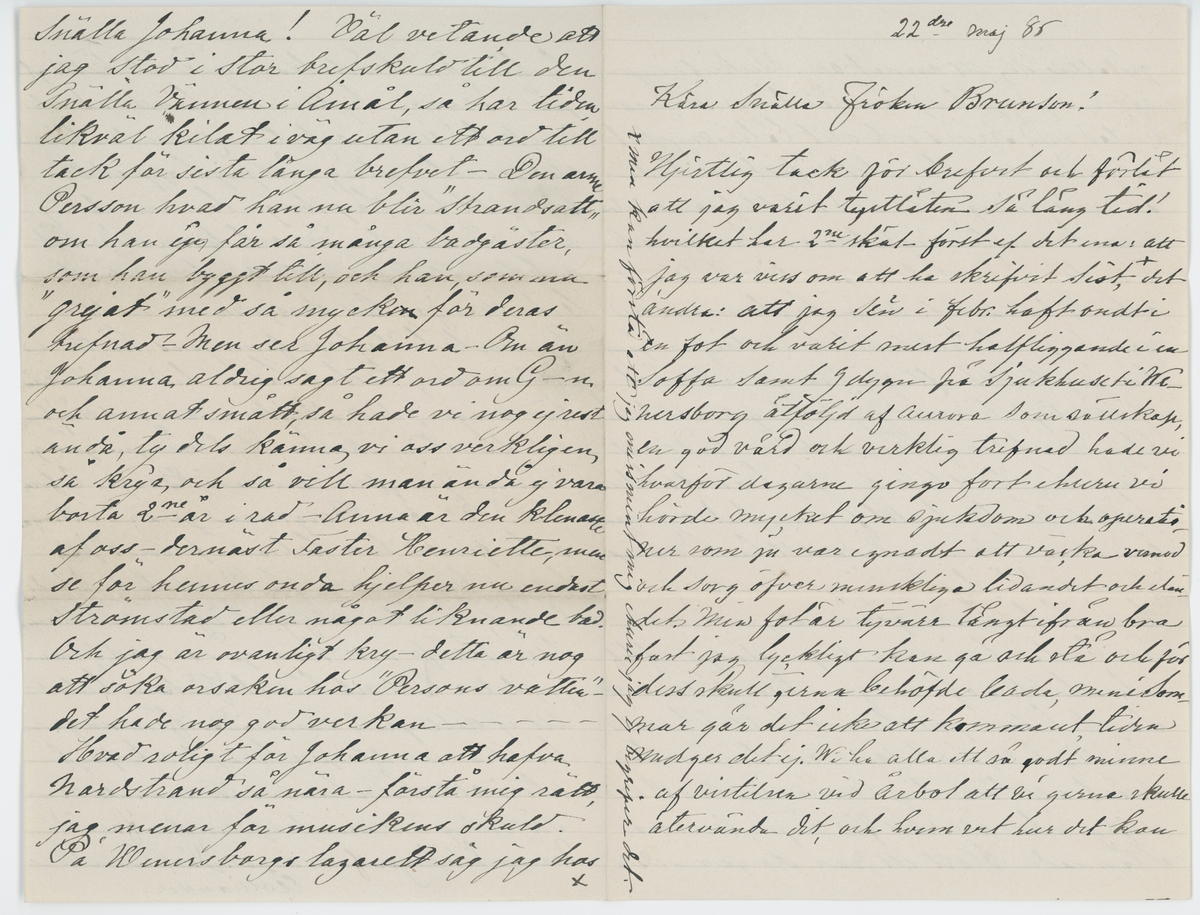 Snälla Johanna! Väl vetande att
jag stod i stor brefskuld till den
Snälla Vännen i Åmål, så har tiden
likväl kilat iväg utan ett ord till
tack för sista långa brefvet – Den arme
Persson hvad han nu blir "Strandsatt"
om han ej får så många badgäster,
som han byggt till, och han, som nu
"grejat" med så mycken för deras
trefnad – Men ser Johanna – Om än
Johanna aldrig sagt ett ord om G–n
och annat smått, så hade vi nog ej rest
ändå, ty dels känna vi oss verkligen
så krya, och så vill man ändå ej vara
borta 2ne år i rad – Anna är den klenaste
af oss – dernäst Faster Henriette, men
se för hennes onda hjelper nu endast
Strömstad eller något liknande bad.
Och jag är ovanligt kry – detta är nog
att söka orsaken hos "Persons vatten" –
det hade nog god verkan – – – –
Hvad roligt för Johanna att hafva
Nordstrand så nära – förstå mig rätt,
jag menar för musikens skuld.
På Wenersborgs lazarett såg jag hos
x
22dre maj 86
Kära Snälla Fröken Brunson!
Hjertlig tack för brefvet och förlåt
att jag varit tystlåten så lång tid!
hvilket har 2ne skäl först af det ena: att
jag var viss om att ha skrifvit sist, + det
andra: att jag sen i febr. haft ondt i
en fot och varit mest halfliggande i en
Soffa samt 9 dygn på Sjukhuset i We-
nersborg åtföljd af Aurora som sällskap,
en god vård och verklig trefnad hade vi
hvarför dagarne gingo fort ehuru vi
hörde mycket om sjukdom och operatio-
ner som ju var egnadt att väcka vemod
och sorg öfver menskliga lidandet och elän-
det. Min fot är tyvärr långt ifrån bra
fast jag lyckligt kan gå och stå och för
dess skull gerna behöfde bada, men i Som-
mar går det icke att komma ut, tiden
medger det ej. Wi ha alla ett så godt minne
af vistelsen vid Årbol att vi gerna skulle
återvända dit, och hvem vet hur det kan
x men kan förstå att jag mismint mig ehuru jag ej begriper det.